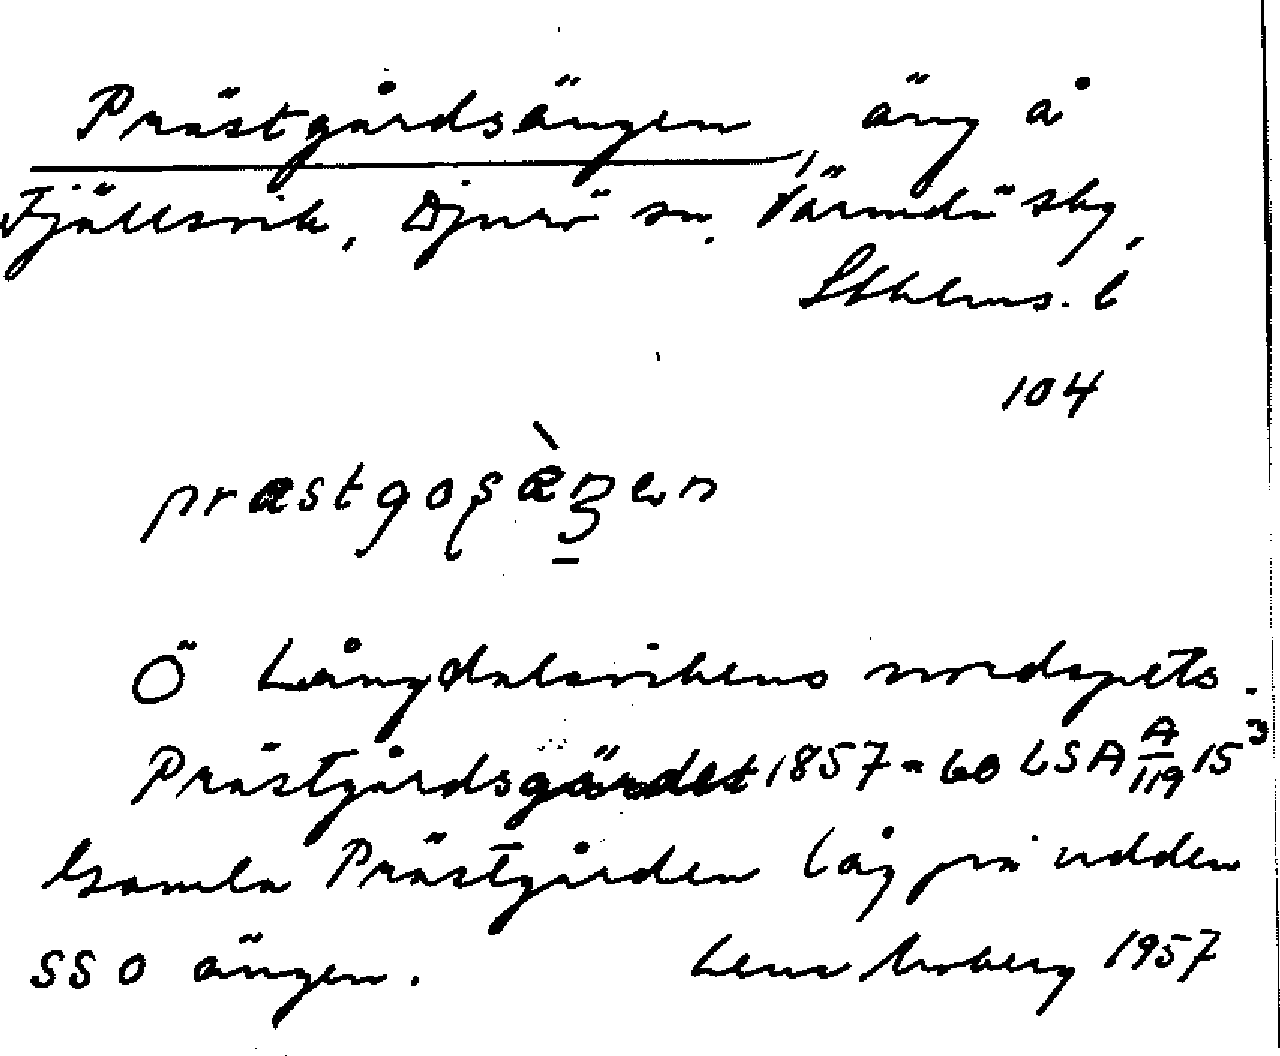 Prästgårdsängen, äng å
Fjällsvik, Djurö sn, Värmdö sky,
Sthlms. l
104
præstgoṣæ̀ŋen
Ö Långdalsvikens nordspets.
Prästgårdsgärdet 1857 = 60 LSA A/119 15³
Gamla Prästgården låg på udden
SSO ängen. Lena Moberg 1957